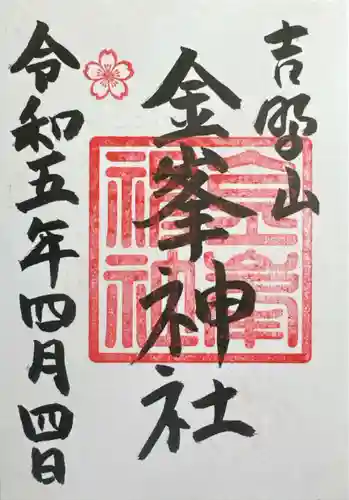 吉野山
金峯神社
令和五年四月四日
金峯神社